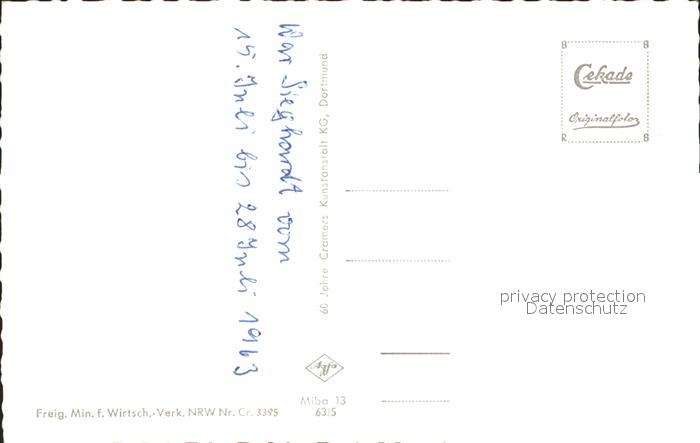 War Sieghardt vom
15. Juli bis 28 Juli 1963
60 Jahre Cramers Kunstanstalt KG, Dortmund
B B
Cekade
Originalfoto
R B
privacy protection
Datenschutz
Agfa
Miba 13
63/5
Freig. Min. f. Wirtsch.-Verk, NRW Nr. Cr. 3395